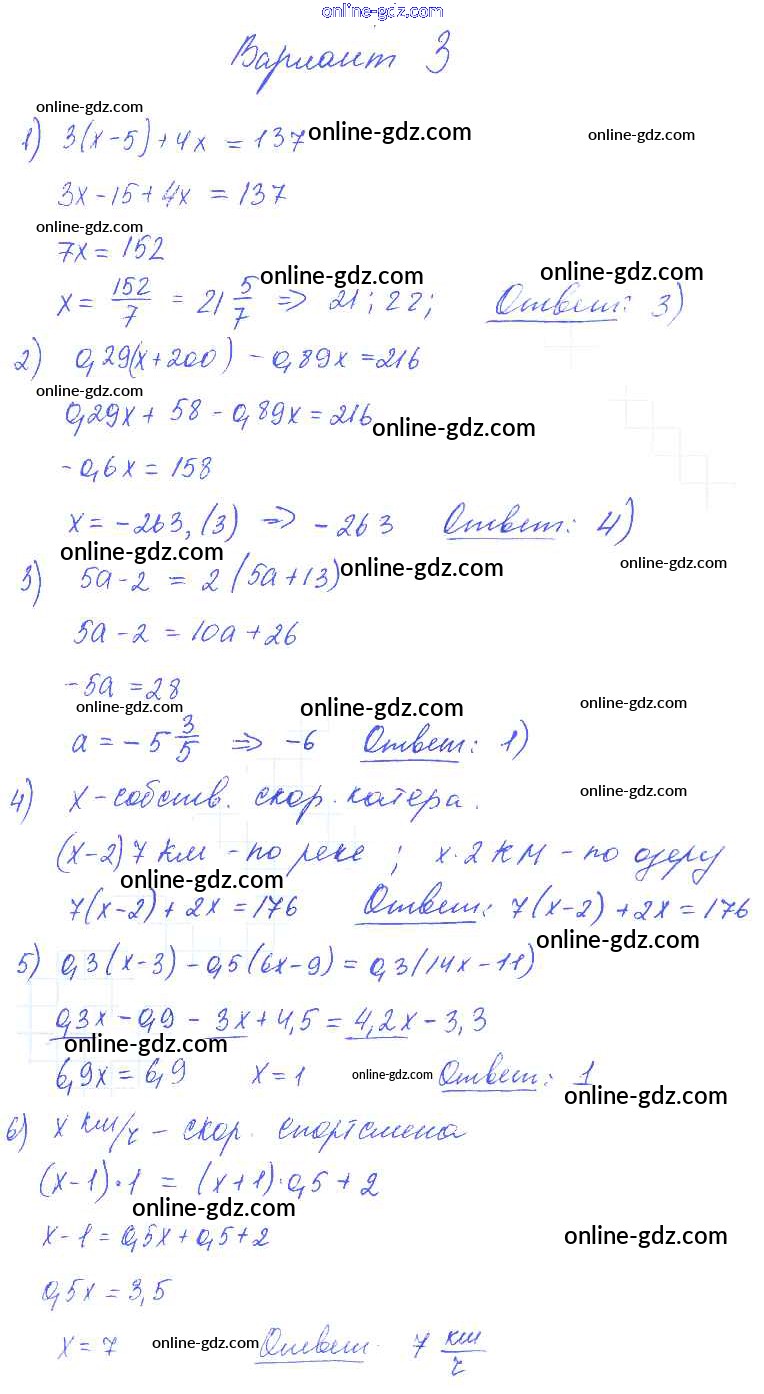 online-gdz.com
Вариант 3
online-gdz.com
1) 3(x-5)+4x = 137 online-gdz.com online-gdz.com
3x-15+4x = 137
online-gdz.com
7x = 152
online-gdz.com online-gdz.com
x = 152/7 = 21 5/7 => 21; 22; Ответ: 3)
2) 0,29(x+200) - 0,89x = 216
online-gdz.com
0,29x + 58 - 0,89x = 216
online-gdz.com
-0,6x = 158
x = -263,(3) => -263 Ответ: 4)
online-gdz.com
3) 5a-2 = 2(5a+13) online-gdz.com online-gdz.com
5a-2 = 10a+26
-5a = 28
online-gdz.com online-gdz.com online-gdz.com
a = -5 3/5 => -6 Ответ: 1)
4) x - собств. скор. катера. online-gdz.com
(x-2)7 км - по реке; x·2 км - по озеру
online-gdz.com
7(x-2) + 2x = 176 Ответ: 7(x-2) + 2x = 176
online-gdz.com
5) 0,3(x-3) - 0,5(6x-9) = 0,3(14x-11)
0,3x - 0,9 - 3x + 4,5 = 4,2x - 3,3
online-gdz.com
6,9x = 6,9 x = 1 online-gdz.com Ответ: 1
online-gdz.com
6) x км/ч - скор. спортсмена
(x-1)·1 = (x+1)·0,5 + 2
online-gdz.com
x-1 = 0,5x + 0,5 + 2 online-gdz.com
0,5x = 3,5
x = 7 online-gdz.com Ответ: 7 км/ч